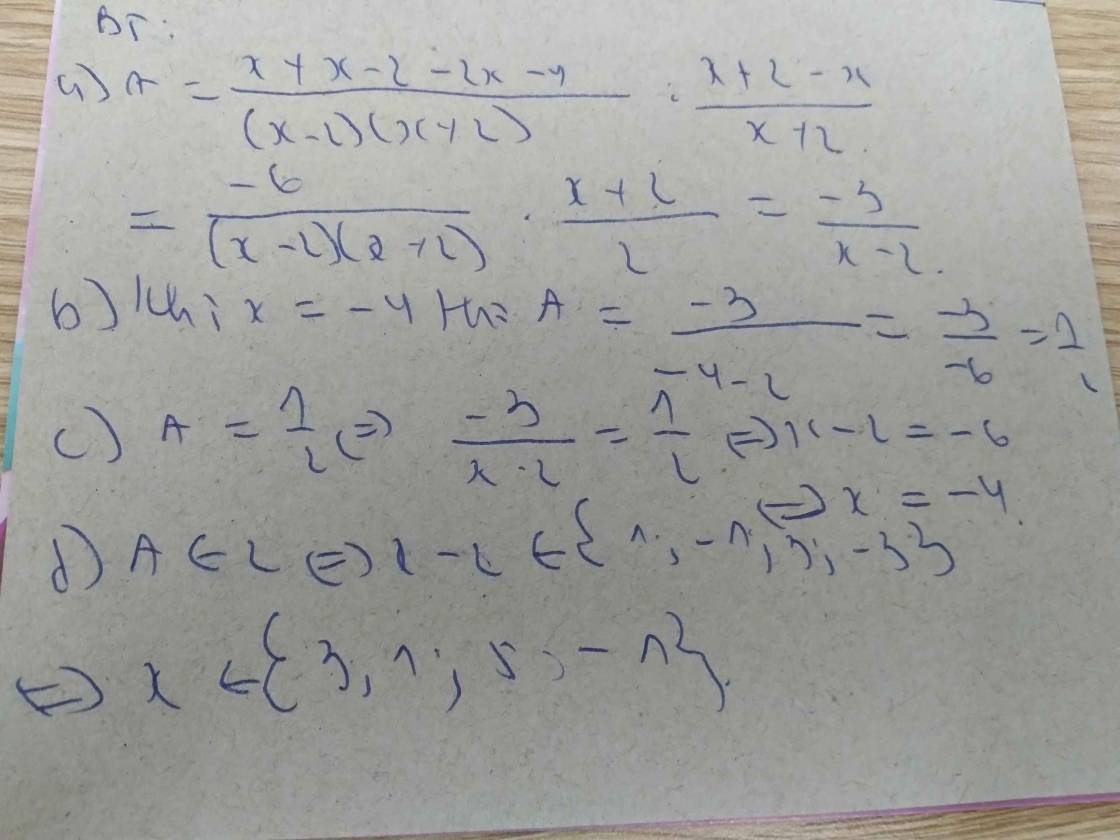 BT:
a) A = \frac{x + x - 2 - 2x - 4}{(x-2)(x+2)} : \frac{x+2-x}{x+2}.
= \frac{-6}{(x-2)(x+2)} \cdot \frac{x+2}{2} = \frac{-3}{x-2}.
b) Khi x = -4 thì A = \frac{-3}{-4-2} = \frac{-3}{-6} = \frac{1}{2}
c) A = \frac{1}{2} ⇔ \frac{-3}{x-2} = \frac{1}{2} ⇔ x - 2 = -6
⇔ x = -4.
d) A ∈ Z ⇔ x - 2 ∈ {1; -1; 3; -3}
⇔ x ∈ {3; 1; 5; -1}.